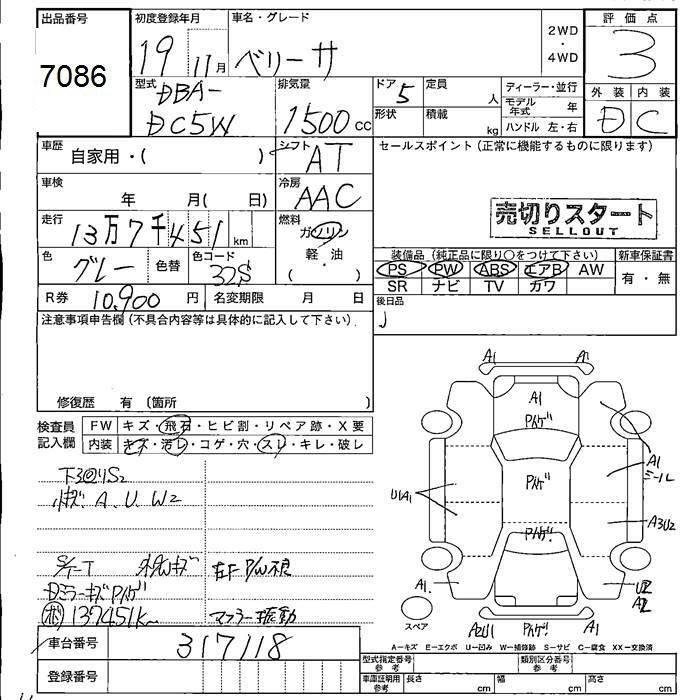 出品番号
7086
初度登録年月
19 11月
車名・グレード
ベリーサ
2WD
・
4WD
評価点
3
外装 内装
D C
型式
DBA-
DC5W
排気量
1500 cc
ドア
5
定員 人
形状
積載 kg
ディーラー・並行
モデル年式 年
ハンドル 左・右
車歴
自家用・( )
シフト
AT
セールスポイント(正常に機能するものに限ります)
車検
年 月( 日)
冷房
AAC
売切りスタート
SELLOUT
走行
13万7千451km
燃料
ガソリン
軽・油
( )
色
グレー
色替
色コード
32S
装備品(純正品に限り○をつけて下さい)
PS PW ABS エアB AW
SR ナビ TV カワ
新車保証書
有・無
R券 10,900 円
名変期限 月 日
後日品
注意事項申告欄(不具合内容等は具体的に記入して下さい)
修復歴 有(箇所 )
検査員記入欄
FW キズ・飛石・ヒビ割・リペア跡・X要
内装 キズ・汚レ・コゲ・穴・スレ・キレ・破レ
小キズ A、U、W2
左F P/W不良
Dミラーキズ Pハゲ
137451km
マフラー振動
A1 A1
A1
Pハゲ
Pハゲ
Pハゲ
U1A1
A1
ミール
A3U2
A1
U2
A2
スペア
A2U1 Pハゲ A1
A-キズ E-エクボ U-凹み W-補修跡 S-サビ C-腐食 XX-交換済
車台番号
317118
登録番号
型式指定番号 参考
類別区分番号 参考
車庫証明用 参考
長さ cm
幅 cm
高さ cm